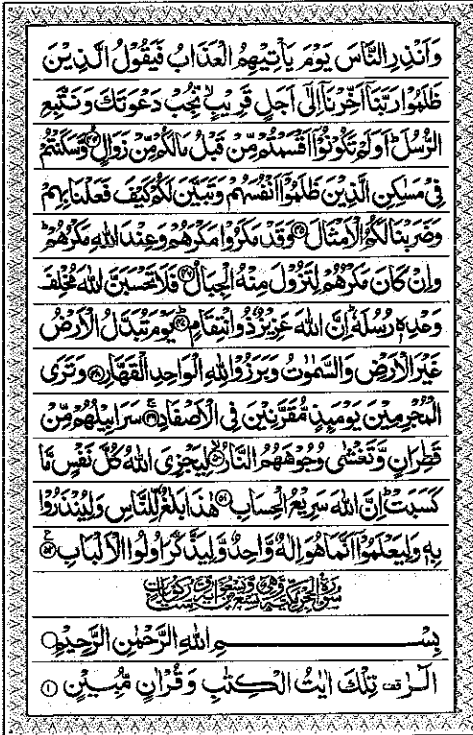 وَاَنْذِرِ النَّاسَ يَوْمَ يَاْتِيْهِمُ الْعَذَابُ فَيَقُوْلُ الَّذِيْنَ
ظَلَمُوْا رَبَّنَاۤ اَخِّرْنَاۤ اِلٰۤى اَجَلٍ قَرِيْبٍ ۙ نُّجِبْ دَعْوَتَكَ وَنَتَّبِعِ
الرُّسُلَ ؕ اَوَلَمْ تَكُوْنُوْۤا اَقْسَمْتُمْ مِّنْ قَبْلُ مَا لَكُمْ مِّنْ زَوَالٍ ۙ﴿۴۴﴾ وَّسَكَنْتُمْ
فِيْ مَسٰكِنِ الَّذِيْنَ ظَلَمُوْۤا اَنْفُسَهُمْ وَتَبَيَّنَ لَكُمْ كَيْفَ فَعَلْنَا بِهِمْ
وَضَرَبْنَا لَكُمُ الْاَمْثَالَ ﴿۴۵﴾ وَقَدْ مَكَرُوْا مَكْرَهُمْ وَعِنْدَ اللّٰهِ مَكْرُهُمْ ؕ
وَاِنْ كَانَ مَكْرُهُمْ لِتَزُوْلَ مِنْهُ الْجِبَالُ ﴿۴۶﴾ فَلَا تَحْسَبَنَّ اللّٰهَ مُخْلِفَ
وَعْدِهٖ رُسُلَهٗ ؕ اِنَّ اللّٰهَ عَزِيْزٌ ذُو انْتِقَامٍ ؕ﴿۴۷﴾ يَوْمَ تُبَدَّلُ الْاَرْضُ
غَيْرَ الْاَرْضِ وَالسَّمٰوٰتُ وَبَرَزُوْا لِلّٰهِ الْوَاحِدِ الْقَهَّارِ ﴿۴۸﴾ وَتَرَى
الْمُجْرِمِيْنَ يَوْمَئِذٍ مُّقَرَّنِيْنَ فِي الْاَصْفَادِ ۚ﴿۴۹﴾ سَرَابِيْلُهُمْ مِّنْ
قَطِرَانٍ وَّتَغْشٰى وُجُوْهَهُمُ النَّارُ ۙ﴿۵۰﴾ لِيَجْزِيَ اللّٰهُ كُلَّ نَفْسٍ مَّا
كَسَبَتْ ؕ اِنَّ اللّٰهَ سَرِيْعُ الْحِسَابِ ﴿۵۱﴾ هٰذَا بَلٰغٌ لِّلنَّاسِ وَلِيُنْذَرُوْا
بِهٖ وَلِيَعْلَمُوْۤا اَنَّمَا هُوَ اِلٰهٌ وَّاحِدٌ وَّلِيَذَّكَّرَ اُولُوا الْاَلْبَابِ ﴿۵۲﴾
سورة الحجر مكية وهي تسع وتسعون
بِسْمِ اللّٰهِ الرَّحْمٰنِ الرَّحِيْمِ
الٓرٰ ۟ تِلْكَ اٰيٰتُ الْكِتٰبِ وَقُرْاٰنٍ مُّبِيْنٍ ﴿۱﴾